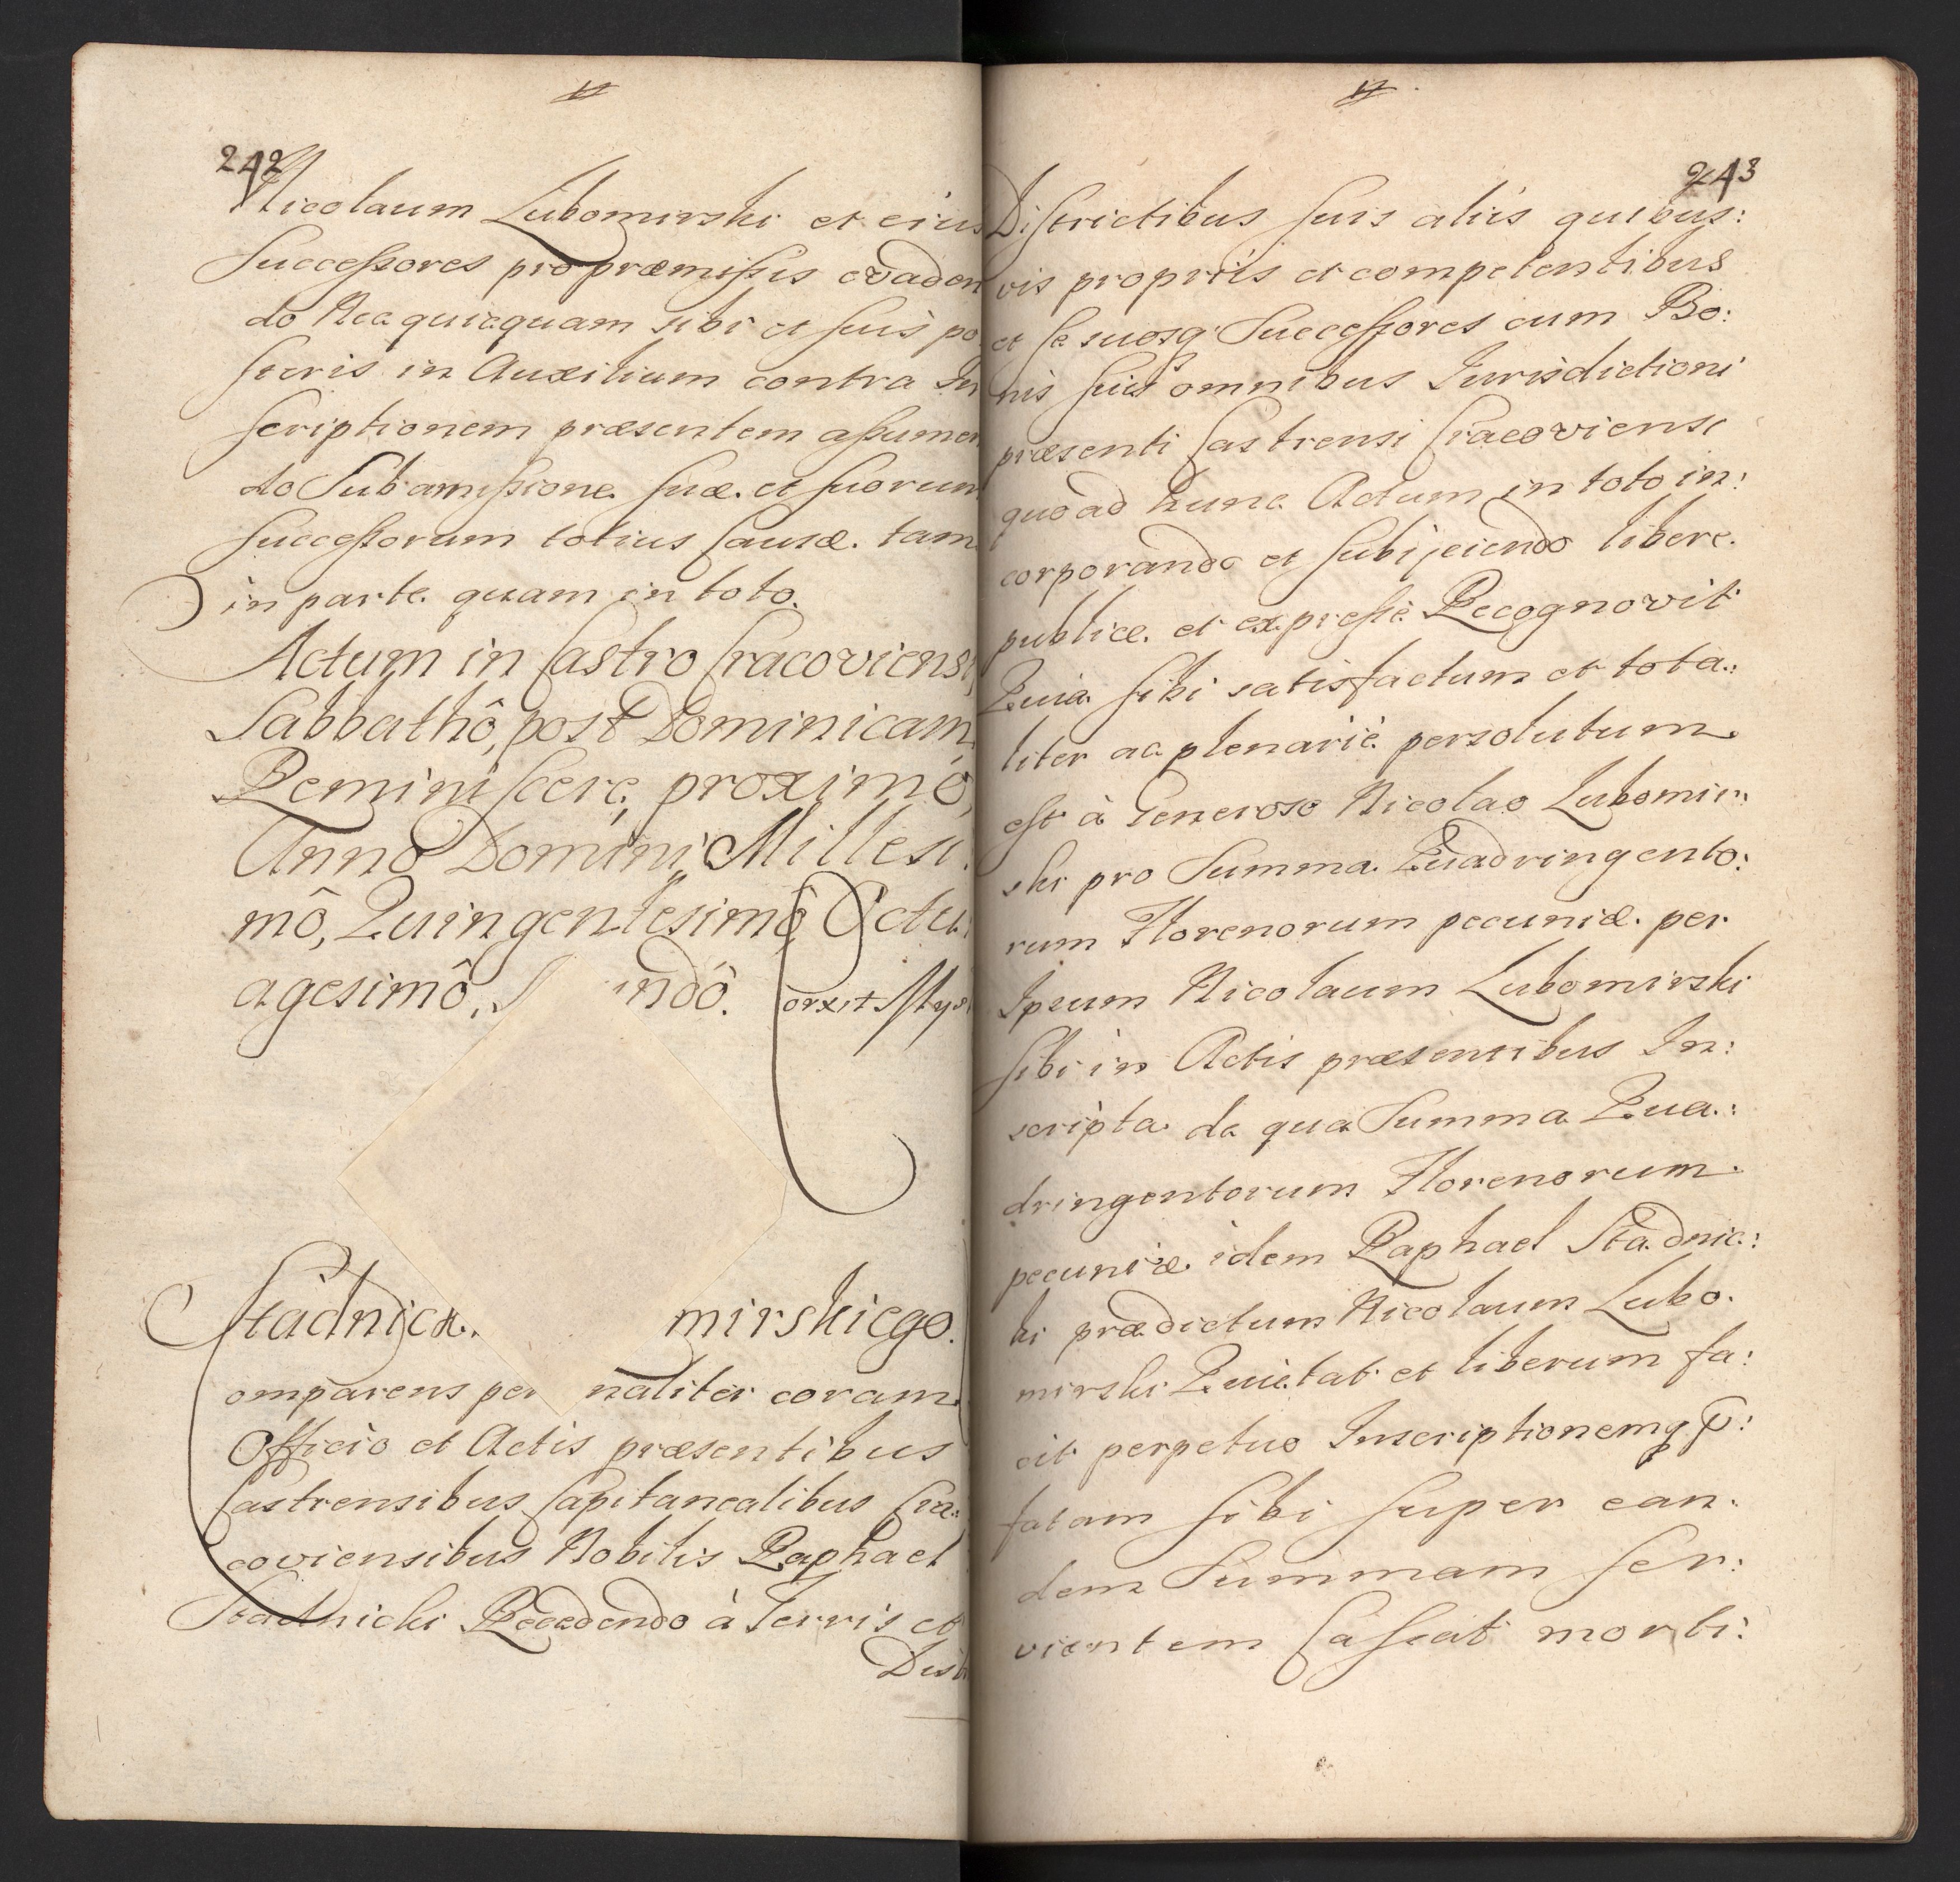 242
Nicolaum Lubomirski et eius
Successores pro præmissis evaden
do Nec quicquam sibi et suis po
steris in Auxilium contra In
scriptionem præsentem assumen
do Sub amissione suæ et suorum
Successorum totius Causæ tam
in parte quam in toto.
Actum in Castro Cracoviensi,
Sabbathô, post Dominicam
Reminiscere, proximô,
Anno Domini Millesi:
mô, Quingentesimô Octu:
agesimô, S ndô. Corxit
Stadnick mirskiego.
omparens per naliter coram
Officio et Actis præsentibus
Castrensibus Capitanealibus Cra:
coviensibus Nobilis Raphael
Stadnicki Recedendo à Terris et
Dist
243
Districtibus suis aliis quibus:
vis propriis et competentibus
et se suosq Successores cum Bo:
nis suis omnibus Jurisdictioni
præsenti Castrensi Cracoviensi
quo ad hunc Actum in toto in:
corporando et subijciendo libere
publice et expresse Recognovit
Quia sibi satisfactum et tota:
liter ac plenarie persolutum
est à Generoso Nicolao Lubomir:
ski pro Summa Quadringento:
rum Florenorum pecuniæ per
Ipsum Nicolaum Lubomirski
sibi in Actis præsentibus In:
scripta de qua Summa Qua:
dringentorum Florenorum
pecuniæ idem Raphael Stadnic:
ki prædictum Nicolaum Lubo:
mirski Quietat et liberum fa:
cit perpetuo Inscriptionemq p:
fatam sibi super ean:
dem Summam ser:
vientem Cassat morti: